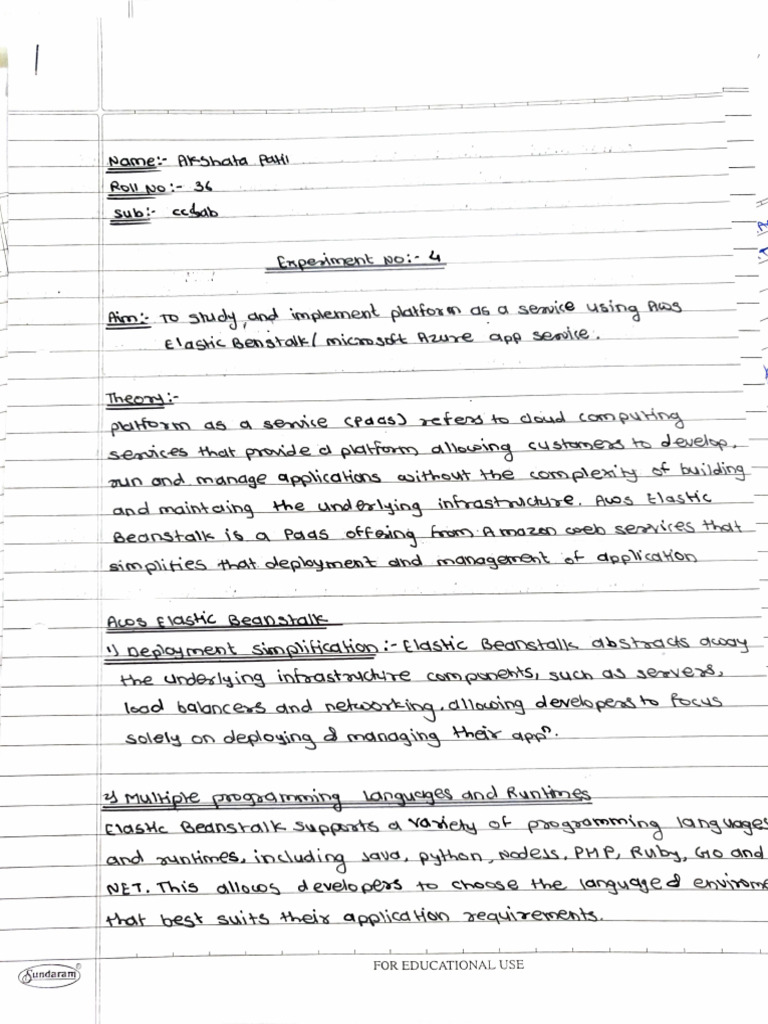 Name:- Akshata Patil
Roll No:- 36
Sub:- cclab
Experiment No:- 4
Aim:- To study, and implement platform as a service using Aws
Elastic Benstalk / microsoft Azure app service.
Theory:-
platform as a service (Paas) refers to cloud computing
services that provide a platform allowing customers to develop,
run and manage applications without the complexity of building
and maintaing the underlying infrastructure. Aws Elastic
Beanstalk is a Paas offering from Amazon web services that
simplifies that deployment and management of application
Aws Elastic Beanstalk
1) Deployment simplification:- Elastic Beanstalk abstracts away
the underlying infrastructure components, such as servers,
load balancers and networking, allowing developers to focus
solely on deploying & managing their appn.
2) Multiple programming languages and Runtimes
Elastic Beanstalk supports a variety of programming languages
and runtimes, including Java, python, NodeJs, PHP, Ruby, Go and
NET. This allows developers to choose the language & envirome
that best suits their application requirements.
Sundaram
FOR EDUCATIONAL USE